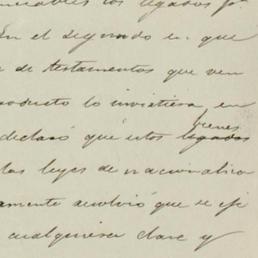 los legados p.
En el segundo en que
de testamentos que ven
producto lo invirtiera, en
declaró que estos legados
bienes
las leyes de nacionaliza
amente resolvió que se eje
cualquiera clase y